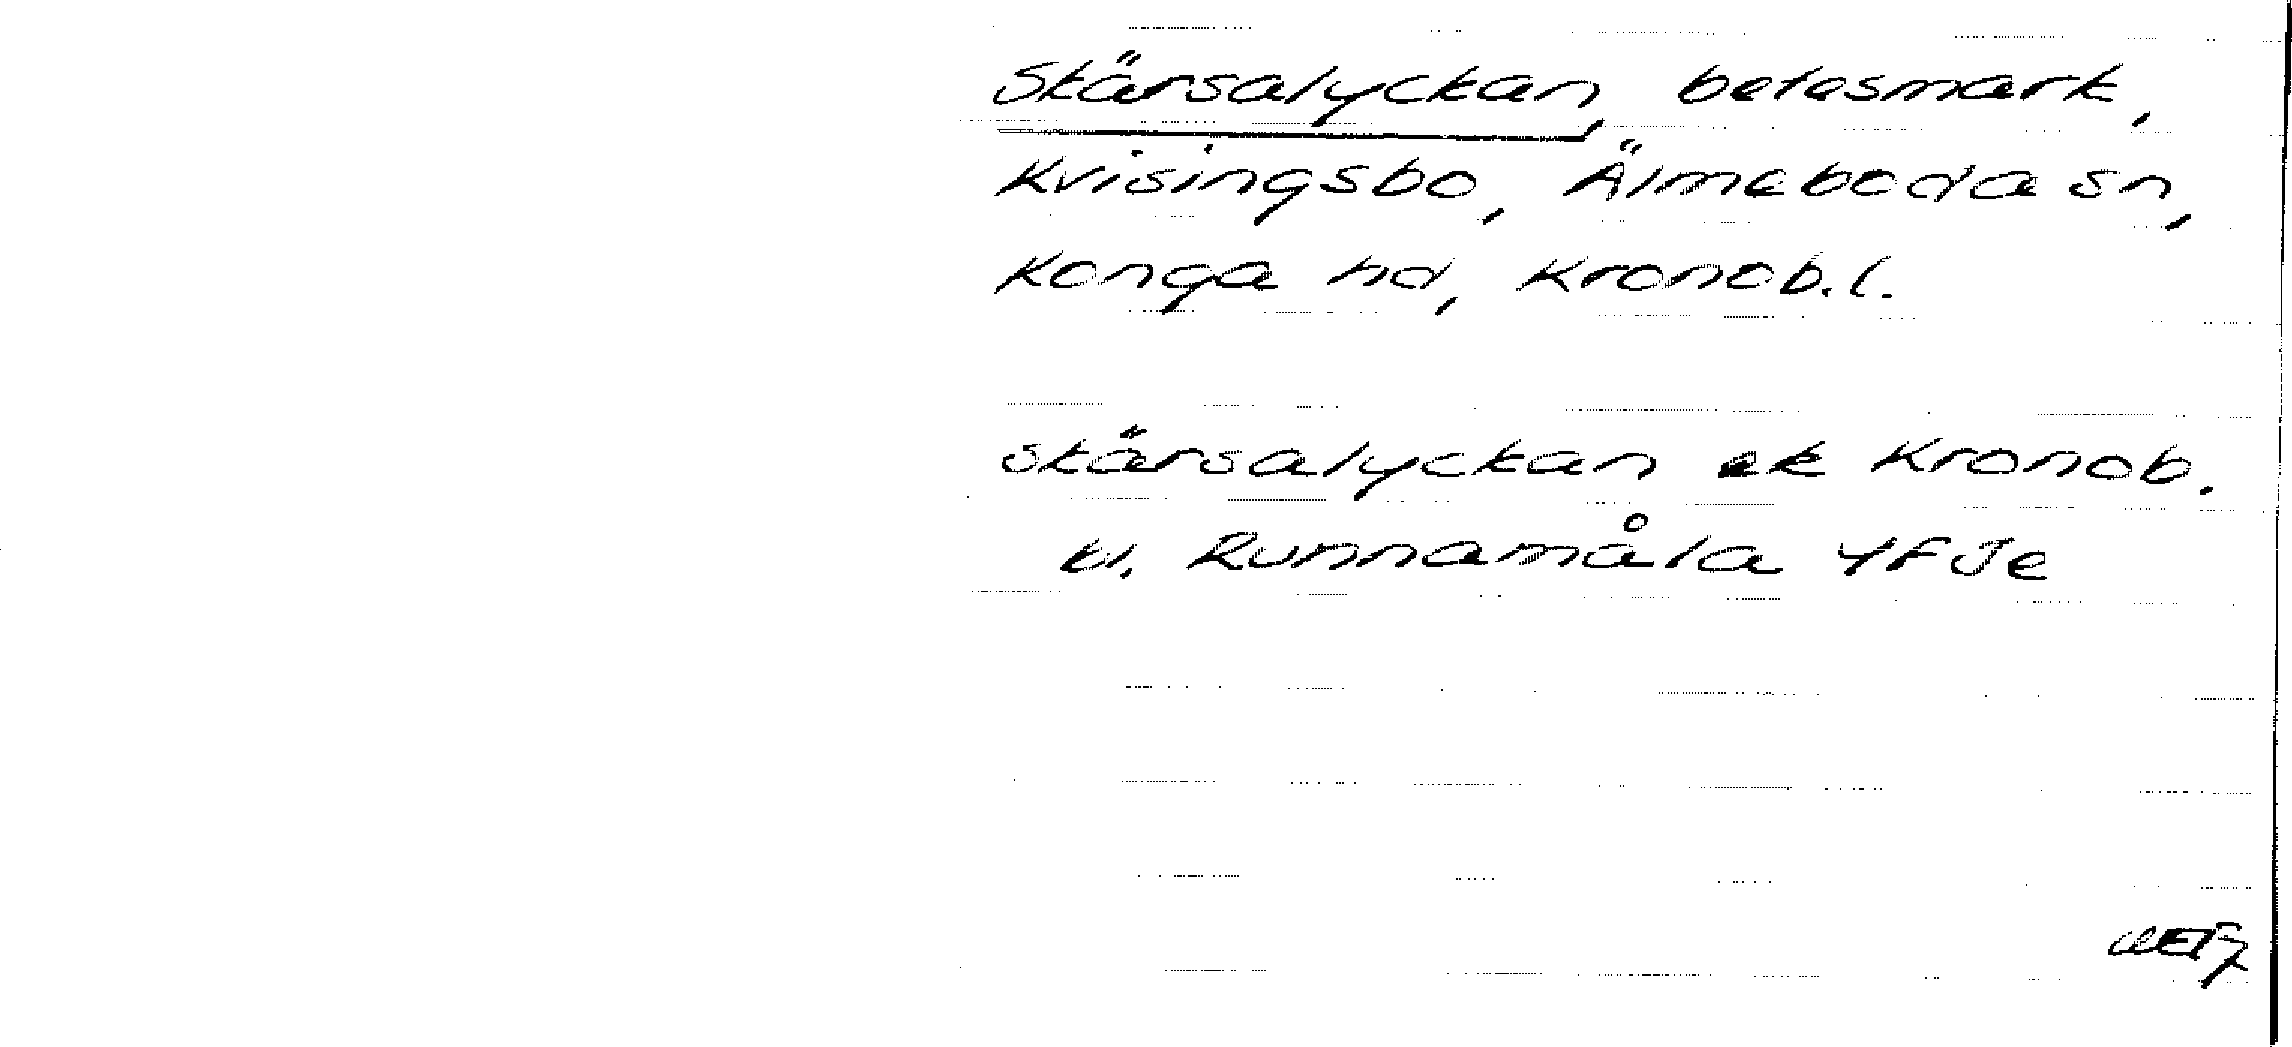 Skärsalyckan, betesmark,
Kvisingsbo, Älmeboda sn,
Konga hd, Kronob. l.
skärsalyckan ek Kronob.
v. Runnamåla YFJe